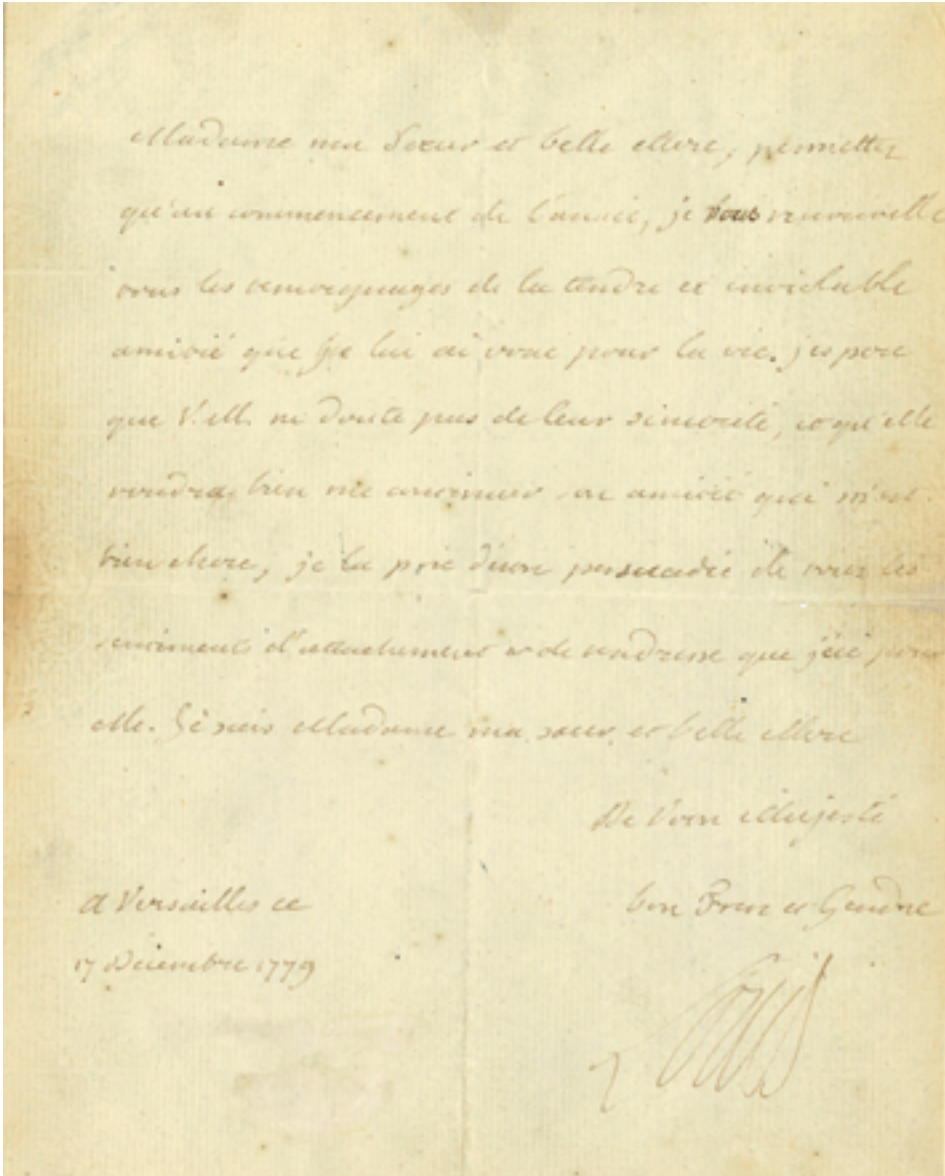 Madame ma Sœur et belle Mere, permettez
qu'au commencement de l'année, je vous renouvelle
tous les temoignages de la tendre et inviolable
amitié que je lui ai voué pour la vie. j'espere
que V. M. ne doute pas de leur sincerité, et qu'elle
voudra bien me continuer son amitié qui m'est
bien chere, je la prie d'etre persuadée de tous les
sentiments d'attachement et de tendresse que j'ai pour
elle. Je suis Madame ma sœur et belle Mere
De Votre Majesté
bon Frere et Gendre
A Versailles ce
17 Decembre 1779
Louis